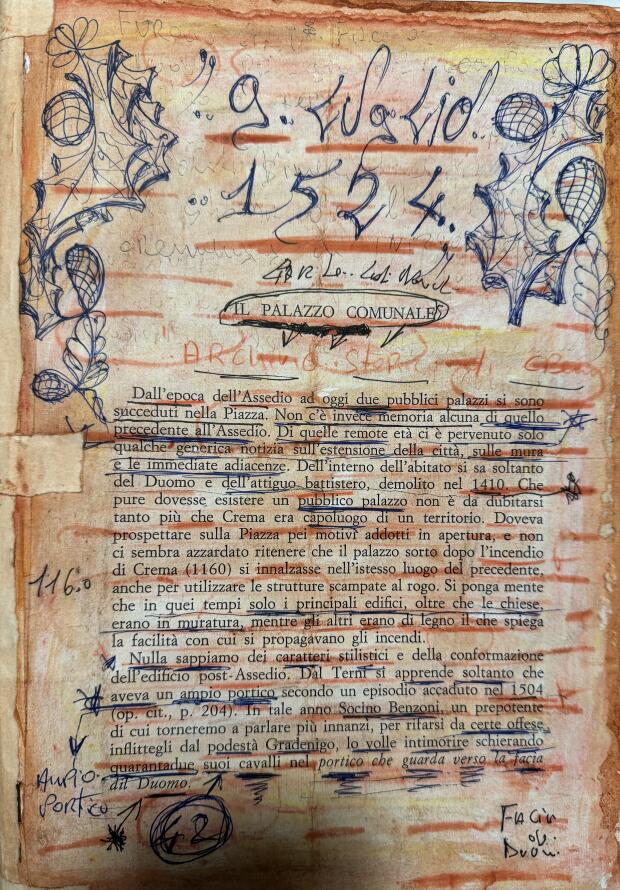 9. Luglio.
1524.
IL PALAZZO COMUNALE
Dall'epoca dell'Assedio ad oggi due pubblici palazzi si sono
succeduti nella Piazza. Non c'è invece memoria alcuna di quello
precedente all'Assedio. Di quelle remote età ci è pervenuto solo
qualche generica notizia sull'estensione della città, sulle mura
e le immediate adiacenze. Dell'interno dell'abitato si sa soltanto
del Duomo e dell'attiguo battistero, demolito nel 1410. Che
pure dovesse esistere un pubblico palazzo non è da dubitarsi
tanto più che Crema era capoluogo di un territorio. Doveva
prospettare sulla Piazza pei motivi addotti in apertura, e non
ci sembra azzardato ritenere che il palazzo sorto dopo l'incendio
di Crema (1160) si innalzasse nell'istesso luogo del precedente,
anche per utilizzare le strutture scampate al rogo. Si ponga mente
che in quei tempi solo i principali edifici, oltre che le chiese,
erano in muratura, mentre gli altri erano di legno il che spiega
la facilità con cui si propagavano gli incendi.
1160
Nulla sappiamo dei caratteri stilistici e della conformazione
dell'edificio post-Assedio. Dal Terni si apprende soltanto che
aveva un ampio portico secondo un episodio accaduto nel 1504
(op. cit., p. 204). In tale anno Socino Benzoni, un prepotente
di cui torneremo a parlare più innanzi, per rifarsi da certe offese
inflittegli dal podestà Gradenigo, lo volle intimorire schierando
quarantadue suoi cavalli nel portico che guarda verso la facia
dil Duomo.
Portico
42